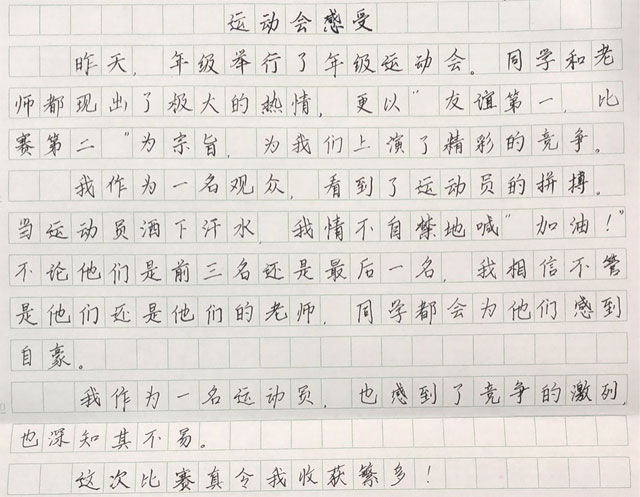 运动会感受
昨天，年级举行了年级运动会。同学和老
师都现出了极大的热情，更以“友谊第一，比
赛第二”为宗旨，为我们上演了精彩的竞争。
我作为一名观众，看到了运动员的拼搏。
当运动员洒下汗水，我情不自禁地喊“加油！”
不论他们是前三名还是最后一名，我相信不管
是他们还是他们的老师，同学都会为他们感到
自豪。
我作为一名运动员，也感到了竞争的激列，
也深知其不易。
这次比赛真令我收获繁多！